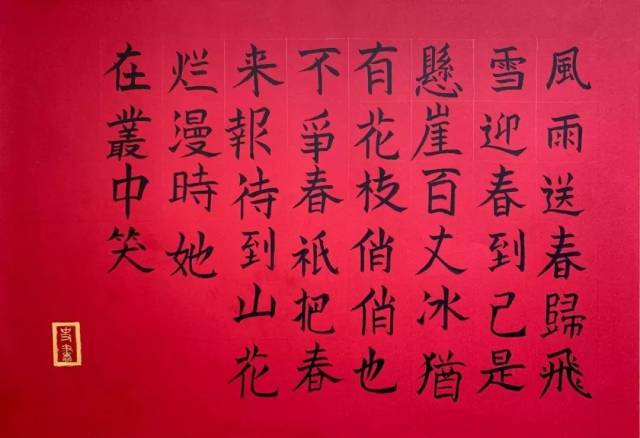 風雨送春歸飛
雪迎春到己是
懸崖百丈冰猶
有花枝俏俏也
不爭春祇把春
来報待到山花
烂漫時她
在叢中笑